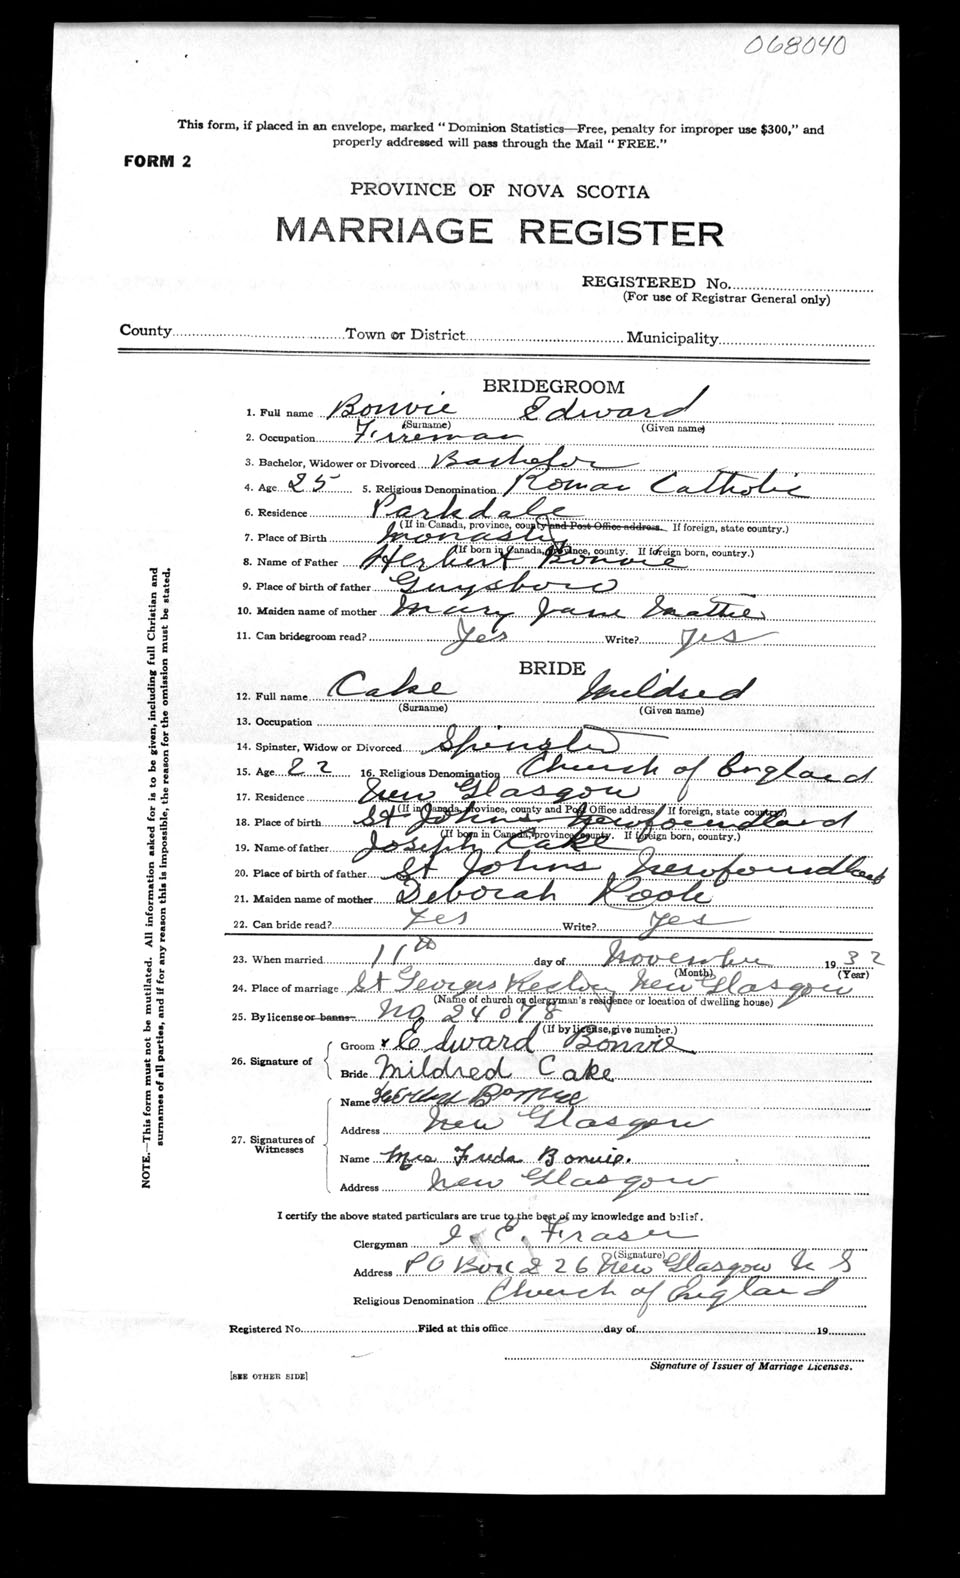 068040
This form, if placed in an envelope, marked "Dominion Statistics—Free, penalty for improper use $300," and
properly addressed will pass through the Mail "FREE."
FORM 2
PROVINCE OF NOVA SCOTIA
MARRIAGE REGISTER
REGISTERED No.
(For use of Registrar General only)
County Town or District Municipality
BRIDEGROOM
1. Full name Bonvie Edward
(Surname) (Given name)
2. Occupation Firreman
3. Bachelor, Widower or Divorced Bachelor
4. Age 25 5. Religious Denomination Roman Catholic
6. Residence Parkdale
(If in Canada, province, county and Post Office address. If foreign, state country.)
7. Place of Birth Monasty
(If born in Canada, province, county. If foreign born, country.)
8. Name of Father Herbert Bonvie
9. Place of birth of father Guysboro
10. Maiden name of mother Mary Jane Mattie
11. Can bridegroom read? Yes Write? Yes
BRIDE
12. Full name Cake Mildred
(Surname) (Given name)
13. Occupation
14. Spinster, Widow or Divorced Spinster
15. Age 22 16. Religious Denomination Church of England
17. Residence New Glasgow
(If in Canada, province, county and Post Office address. If foreign, state country.)
18. Place of birth St Johns Newfoundland
(If born in Canada, province, county. If foreign born, country.)
19. Name of father Joseph Cake
20. Place of birth of father St Johns Newfoundland
21. Maiden name of mother Deborah
22. Can bride read? Yes Write? Yes
23. When married 11th day of November 1932
(Month) (Year)
24. Place of marriage St Georges New Glasgow
(Name of church or clergyman's residence or location of dwelling house)
25. By license or banns No 24078
(If by license, give number.)
26. Signature of
Groom x Edward Bonvie
Bride Mildred Cake
27. Signatures of
Witnesses
Name Bonvie
Address New Glasgow
Name Mrs Freda Bonvie.
Address New Glasgow
I certify the above stated particulars are true to the best of my knowledge and belief.
Clergyman E. Fraser
(Signature)
Address PO Box 226 New Glasgow N S
Religious Denomination Church of England
Registered No. Filed at this office day of 19
Signature of Issuer of Marriage Licenses.
[SEE OTHER SIDE]
NOTE.—This form must not be mutilated. All information asked for is to be given, including full Christian and
surnames of all parties, and if for any reason this is impossible, the reason for the omission must be stated.